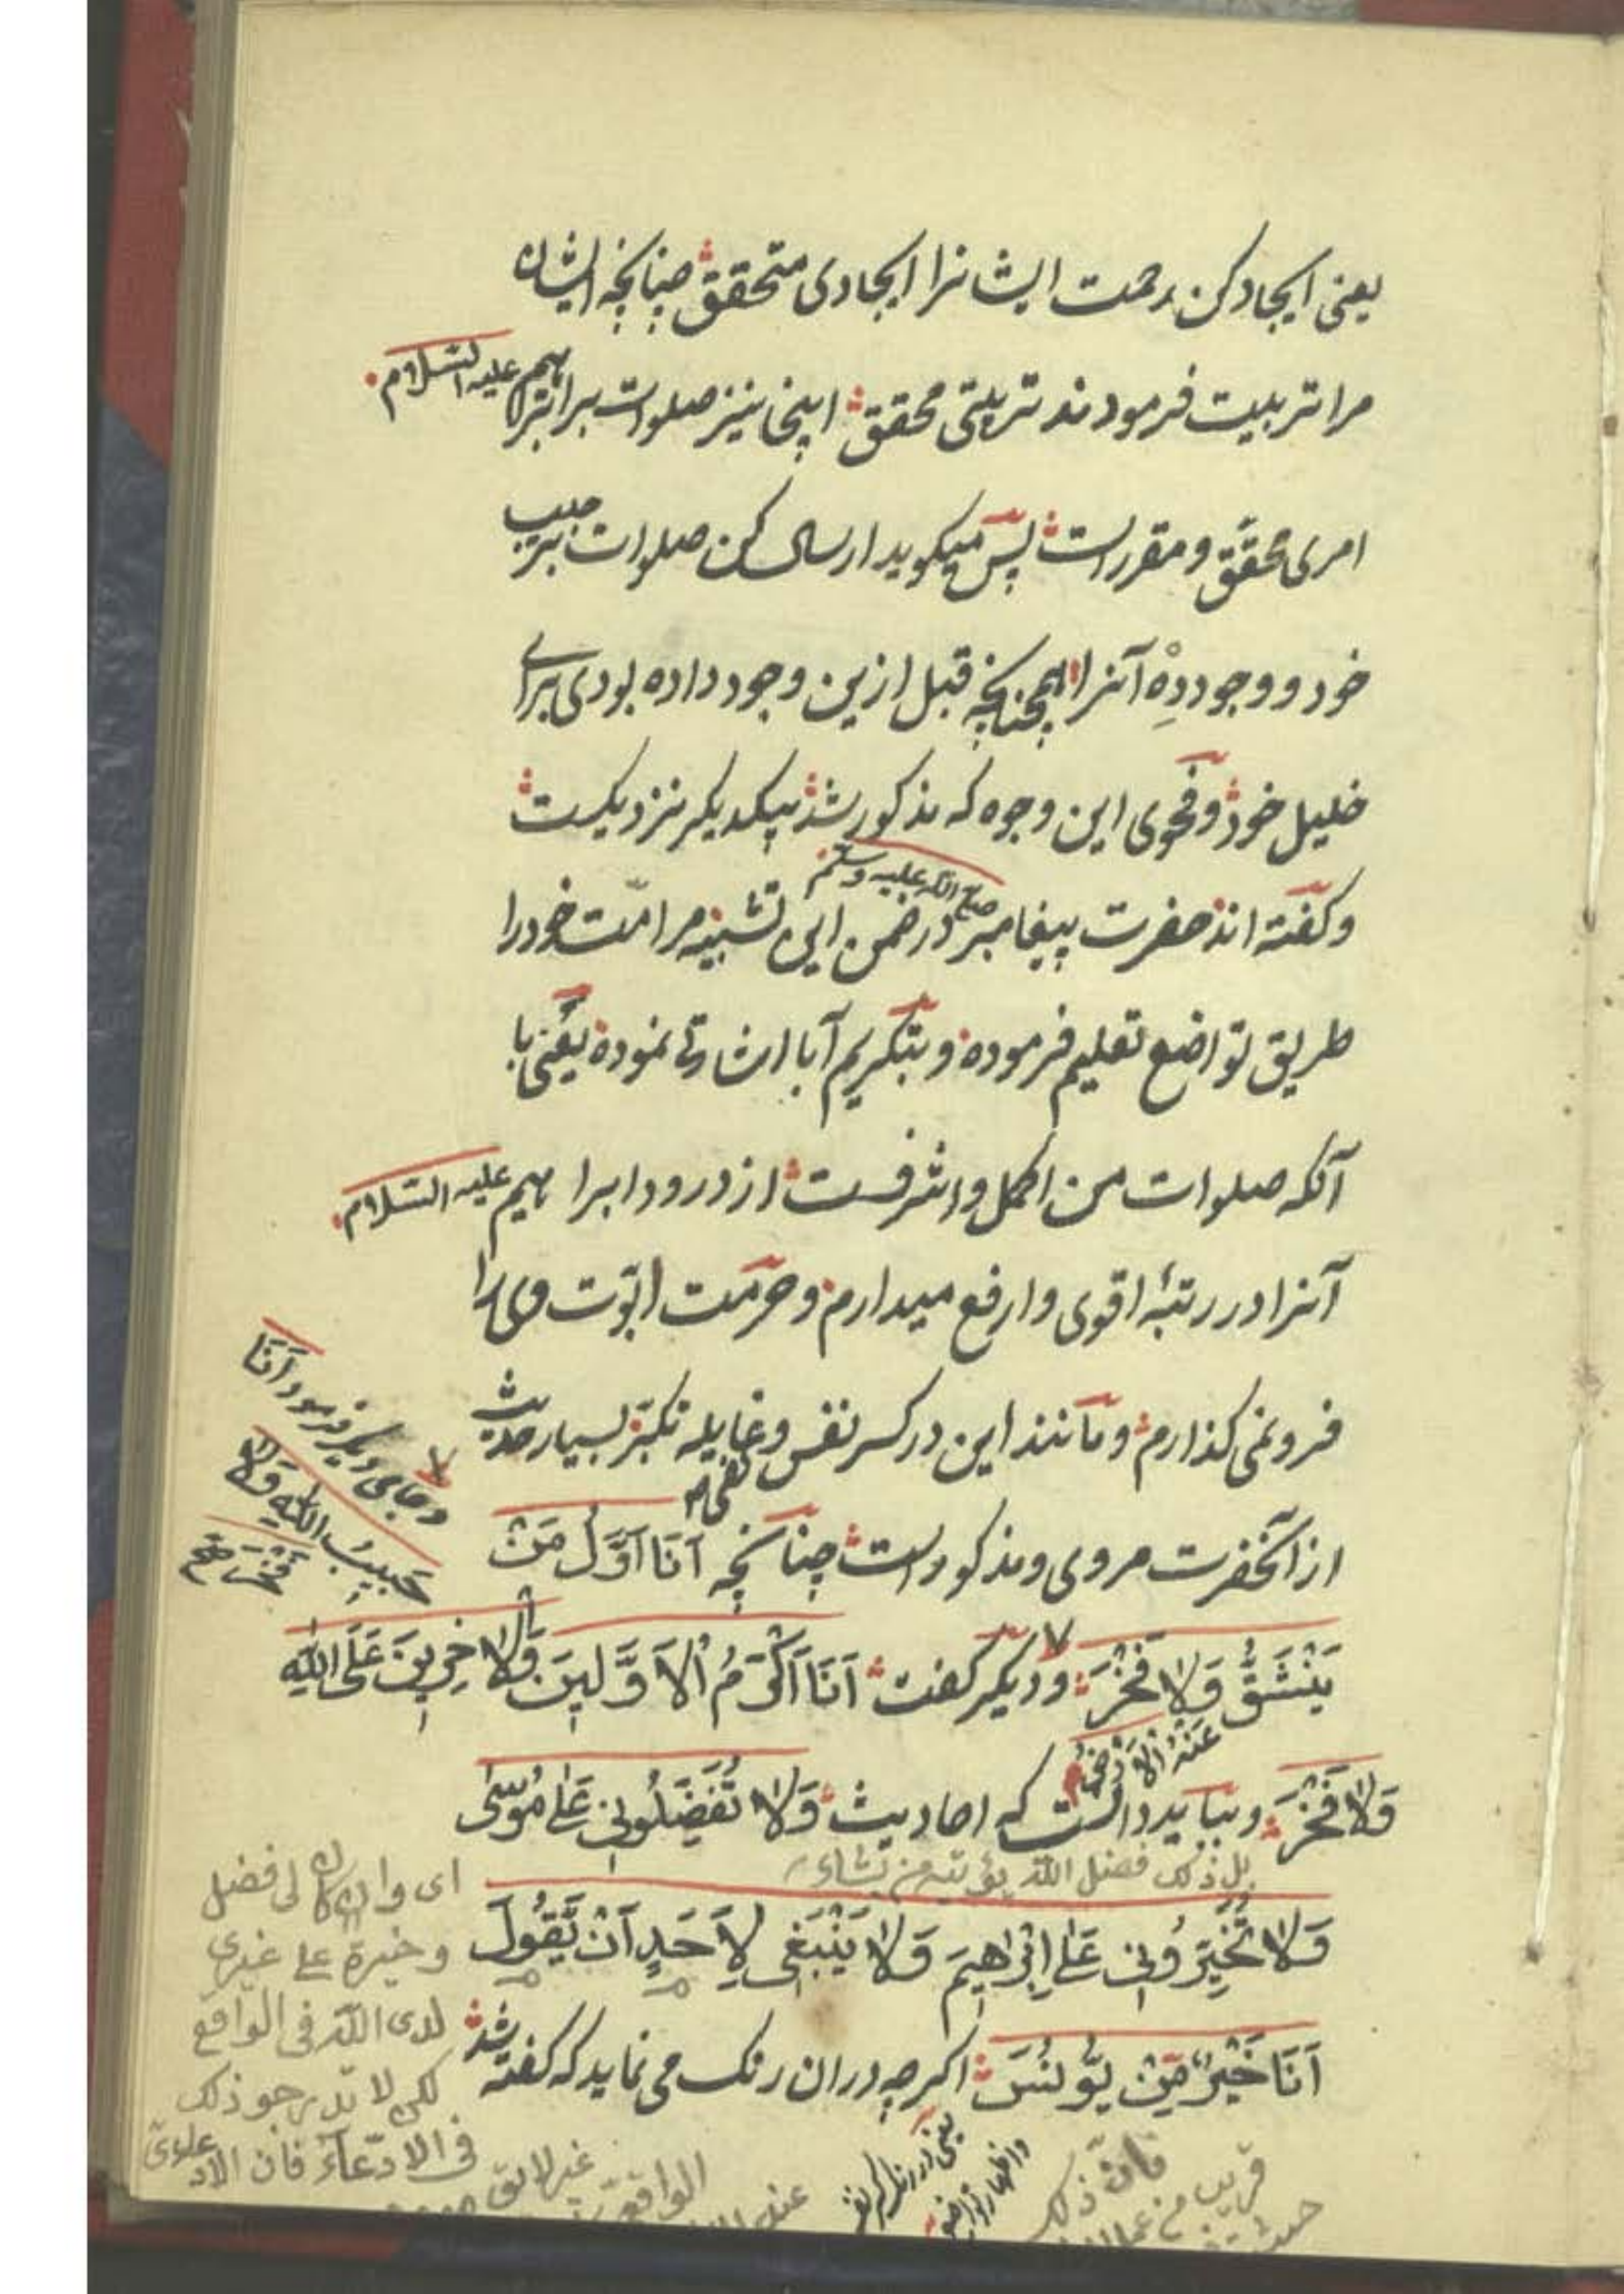 یعنی ایجاد کن رحمت ایشانرا ایجادی متحقق چنانچه ایشان
مرا تربیت فرمودند تربیتی محقق اینجا نیز صلوات بر ابراهیم علیه السلام
امری محقق و مقررست پس میکوید ارسال کن صلوات بر حبیب
خود و وجود ده آنرا همچنانچه قبل ازین وجود داده بودی برای
خلیل خود و فحوی این وجوه که مذکور شد بیکدیکر نزدیکست
وکفته اند حضرت پیغامبر صلی الله علیه وسلم در ضمن این تشبیه مر امّت خود را
طریق تواضع تعلیم فرموده و بتکریم آبا اشارتی نموده یعنی با
آنکه صلوات من اکمل واشرفست از درود ابراهیم علیه السلام
آنرا در رتبه اقوی وارفع میدارم وحرمت ابوّت وی را
فرو نمی کذارم و مانند این در کسر نفس و غایله تکبّر بسیار حدیث
از آنحضرت مروی ومذکورست چنانچه اَنَا اَوَّلُ مَنْ
یَنْشَقُّ عَنْهُ الْاَرْضُ وَلَا فَخْرَ و دیکر کفت اَنَا اَکْرَمُ الْاَوَّلِینَ وَالْاٰخِرِینَ عَلَی اللّٰهِ
وَلَا فَخْرَ و بباید دانست که احادیث وَلَا تُفَضِّلُونِی عَلٰی مُوسٰی
بل ذلک فضل الله یؤتیه من یشاء
وَلَا تُخَیِّرُونِی عَلٰی اِبْرٰاهِیمَ وَلَا یَنْبَغِی لِاَحَدٍ اَنْ یَّقُولَ
اَنَا خَیْرٌ مِّنْ یُّونُسَ اکرچه در ان رنک می نماید که کفته شد
و جای دیکر فرمود اَنَا
حَبِیبُ اللّٰهِ وَلَا
فَخْرَ صح
ای وان کان لی فضل
وخیرة علی غیری
لدی الله فی الواقع
لکن لا بدّ ذلک
فی الادّعآء فان
غیر لائق
الواقع
فانّ ذلک
قریب من